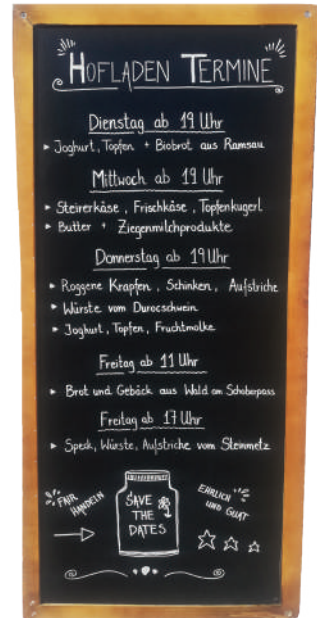 HOFLADEN TERMINE
Dienstag ab 19 Uhr
▸ Joghurt, Topfen + Biobrot aus Ramsau
Mittwoch ab 19 Uhr
▸ Steirerkäse, Frischkäse, Topfenkugerl
▸ Butter + Ziegenmilchprodukte
Donnerstag ab 19 Uhr
▸ Roggene Krapfen, Schinken, Aufstriche
▸ Würste vom Durocschwein
▸ Joghurt, Topfen, Fruchtmolke
Freitag ab 11 Uhr
▸ Brot und Gebäck aus Wald am Schoberpass
Freitag ab 17 Uhr
▸ Speck, Würste, Aufstriche vom Steinmetz
FAIR
HANDELN
SAVE
THE
DATES
EHRLICH
UND GUAT